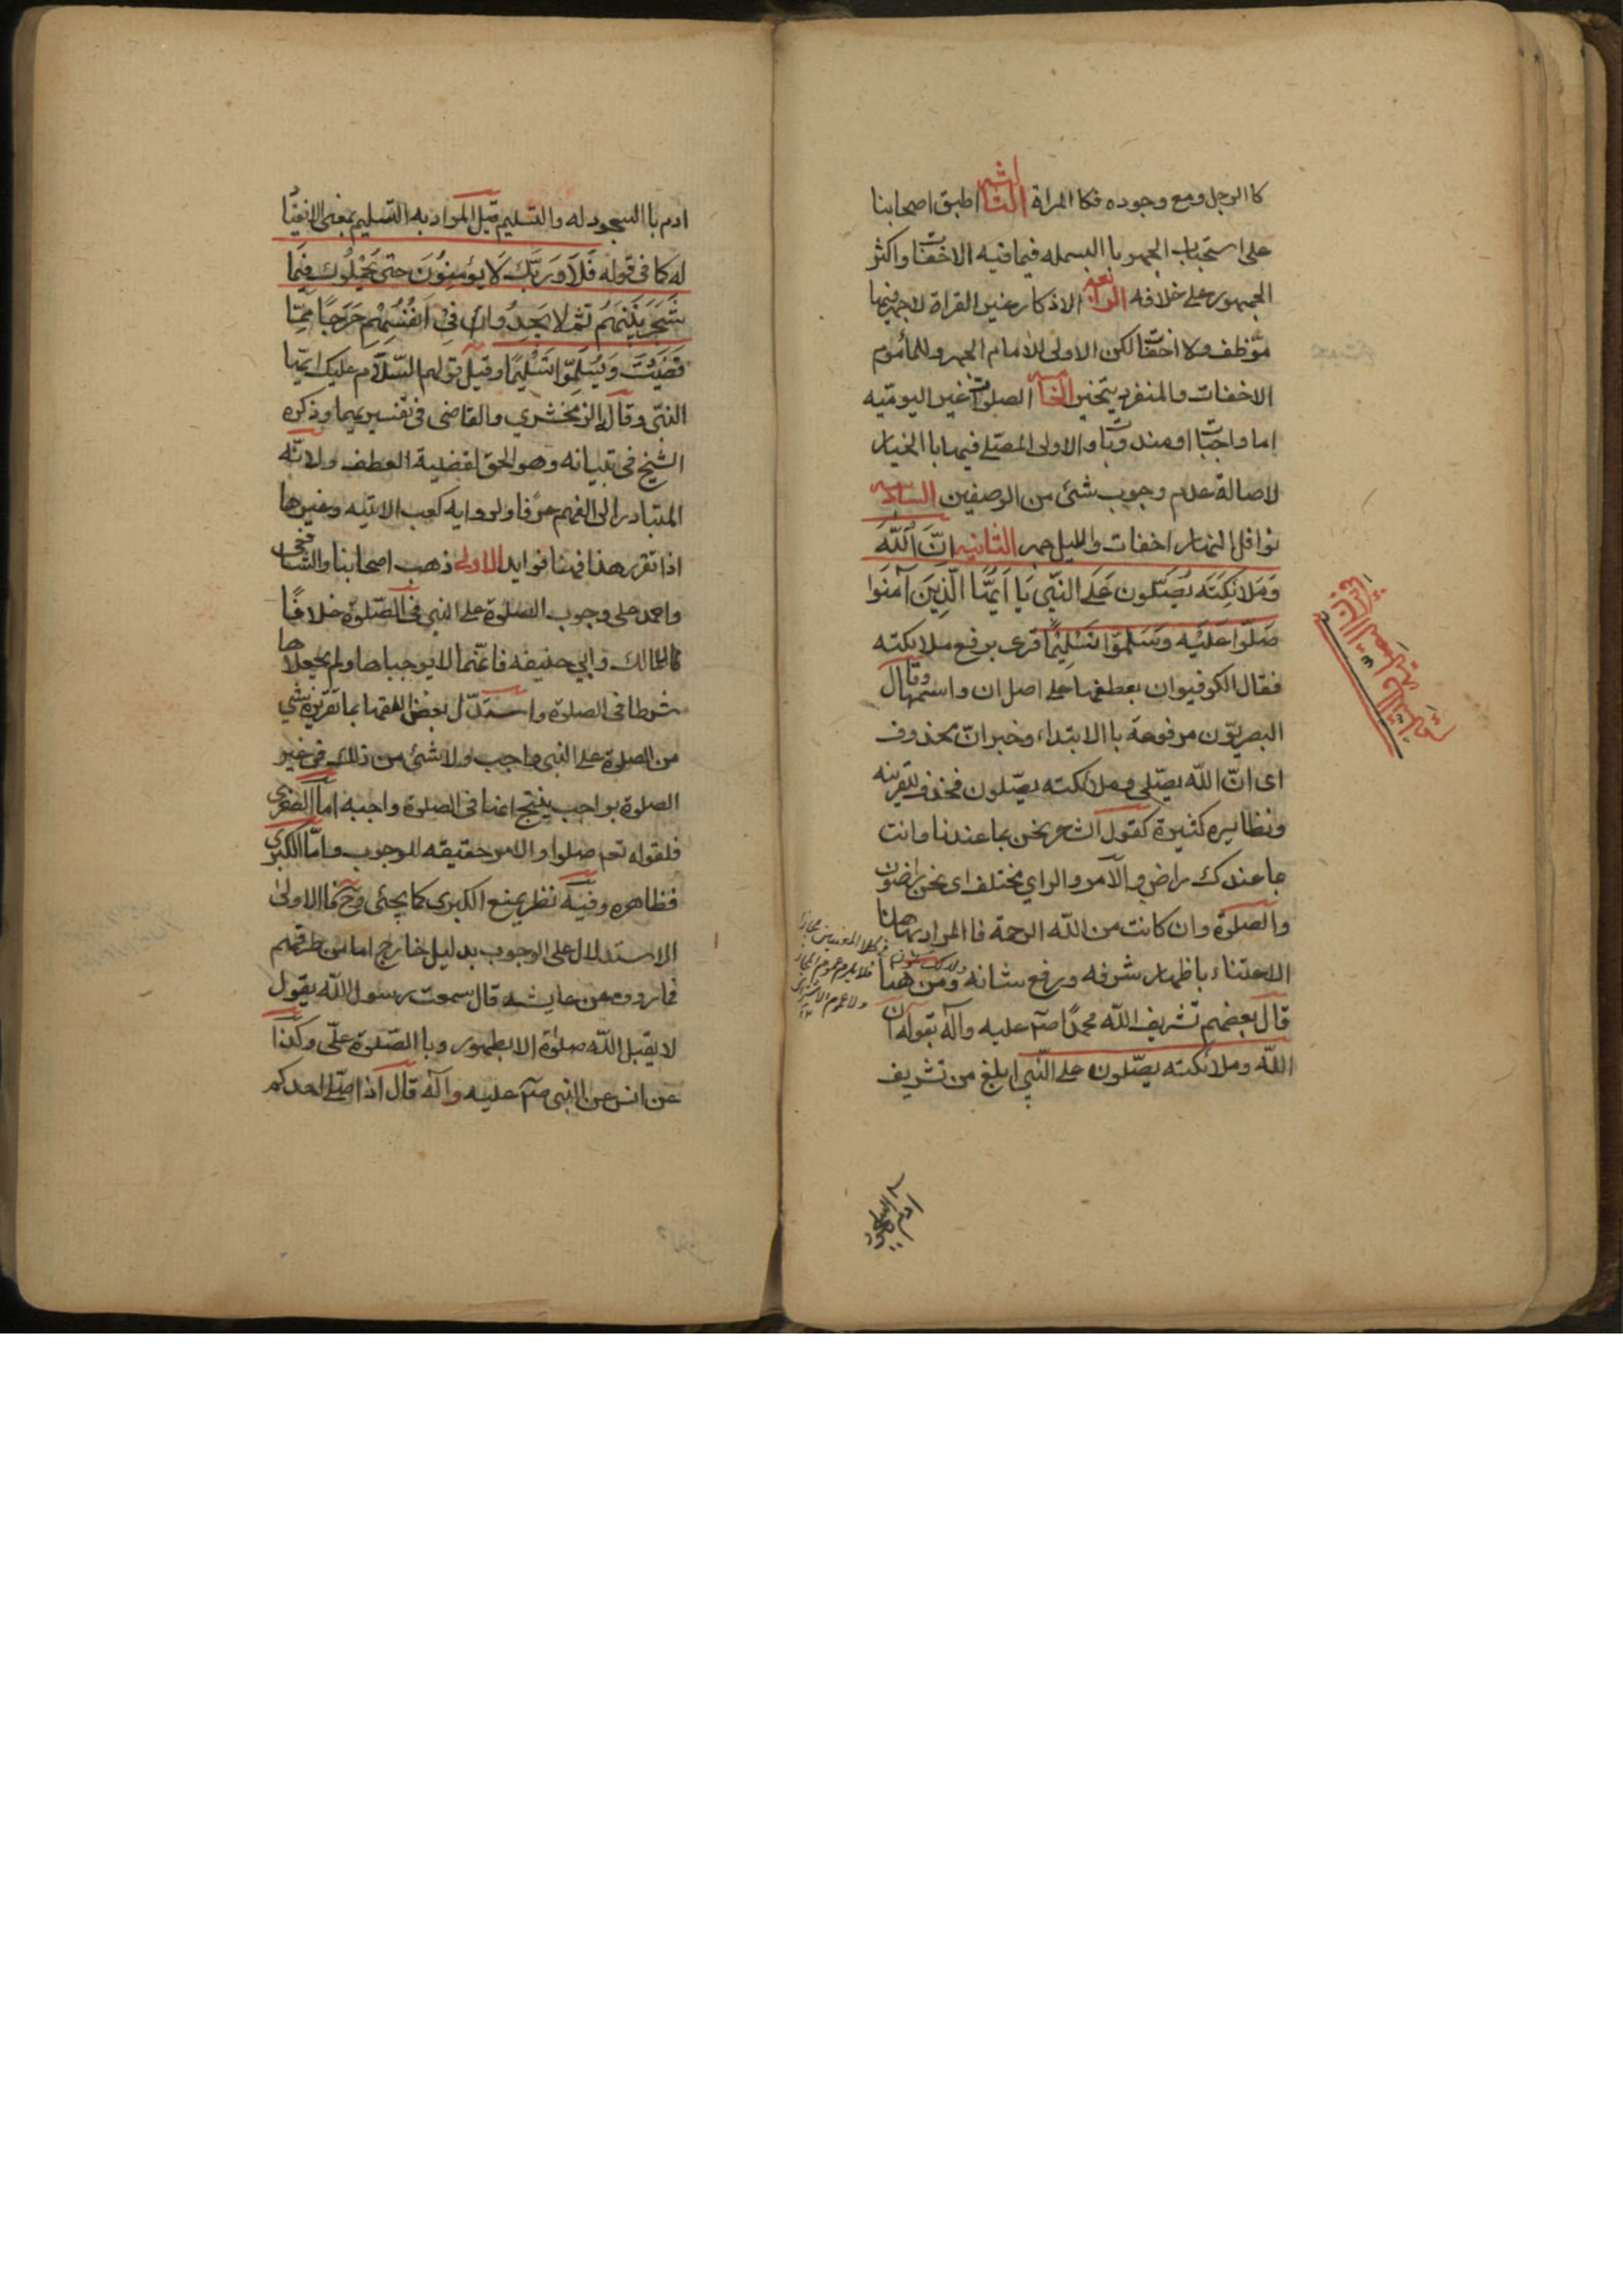 كا الرجل ومع وجوده فكا المراة الثالثه اطبق اصحابنا
على استحباب الجهر با البسمله فيما فيه الاخفات واكثر
الجمهور على خلافه الرابعه الاذكار غير القراة لا جهر فيها
موظف ولا اخفات لكن الاولى للامام الجهر وللمأموم
الاخفات والمنفرد يتخير الخامسه الصلوات غير اليوميّه
اما واجبات او مندوبات والاولى المصلى فيها با الخيار
لاصالة عدم وجوب شئ من الوصفين السادسه
نوافل النهار اخفات والليل جهر الثانيه اِنَّ اللّٰهَ
وَمَلائِكَتَه يُصَلّون عَلَى النَّبّي يَا اَيُّهَا الَّذينَ آمَنَوا
صَلّوا عَلَيْه وَسَلِمّوا تَسْليمًا قرى برفع ملائكته
فقال الكوفيوان بعطفها على اصل ان واسمها وقال
البصريّون مرفوعة با الابتداء وخبر انّ محذوف
اى انّ اللّه يصّلى وملائكته يصّلون فحذف للقرينه
ونظايره كثيرة كقول الشاعر نحن بما عندنا وانت
بما عندك راض والآمر والراي مختلف اى نحن راضون
والصلوة وان كانت من اللّه الرحمة فا المراد بها هنا
الاعتناء باظهار شرفه ورفع شانه ومن هنا
قال بعضهم تشريف اللّه محمدًا صلم عليه وآله بقوله ان
اللّه وملائكته يصّلون على النّبي ابلغ من تشريف
ادم با السجود
ادم با السجود له والتسليم قيل المراد به التسليم بمعنى الانقياد
له كما فى قوله فَلَا وَرَبِّكَ لَا يُؤمِنُونَ حتى يُحَكِّمُوك فِيمَا
شَجَرَ بَيْنَهُم ثم لا يَجِدُوا فِي اَنْفُسِهِم حَرَجًا مِمّا
قَضَيْتَ وَيُسَلِمّوا تَسْليمًا وقيل قولهم السّلام عليك ايّها
النبّى وقال الزمخشري والقاضى فى تفسيريهما وذكره
الشيخ فى تبيانه وهو الحق لقضية العطف ولانّه
المتبادر الى الفهم عرفًا ولرواية كعب الاتيه وغيرها
اذا تقرر هذا فهنا فوايد الاولى ذهب اصحابنا والشافعى
واحمد على وجوب الصلوة على النبى فى الصّلوة خلافًا
لمالك وابي حنيفه فانّهما لا يوجباها ولم يجعلاها
شرطا فى الصلوة واستدّل بعض الفقها بما تقريره شئ
من الصلوة على النبى واجب ولا شئ من ذلك فى غير
الصلوة بواجب ينتج انها فى الصلوة واجبه اما الصغرى
فلقوله تعم صلوا والامر حقيقه للوجوب واما الكبرى
فظاهره وفيه نظر يمنع الكبرى كما يجئى وح فا الاولى
الاستدلال على الوجوب بدليل خارج اما من طرقهم
فما رووه عن عايشه قال سمعت رسول اللّه يقول
لا يقبل اللّه صلوة الا بطهور وبا الصّلوة علّى وكذا
عن انس عن النبى صلم عليه وآله قال اذا صلى احدكم